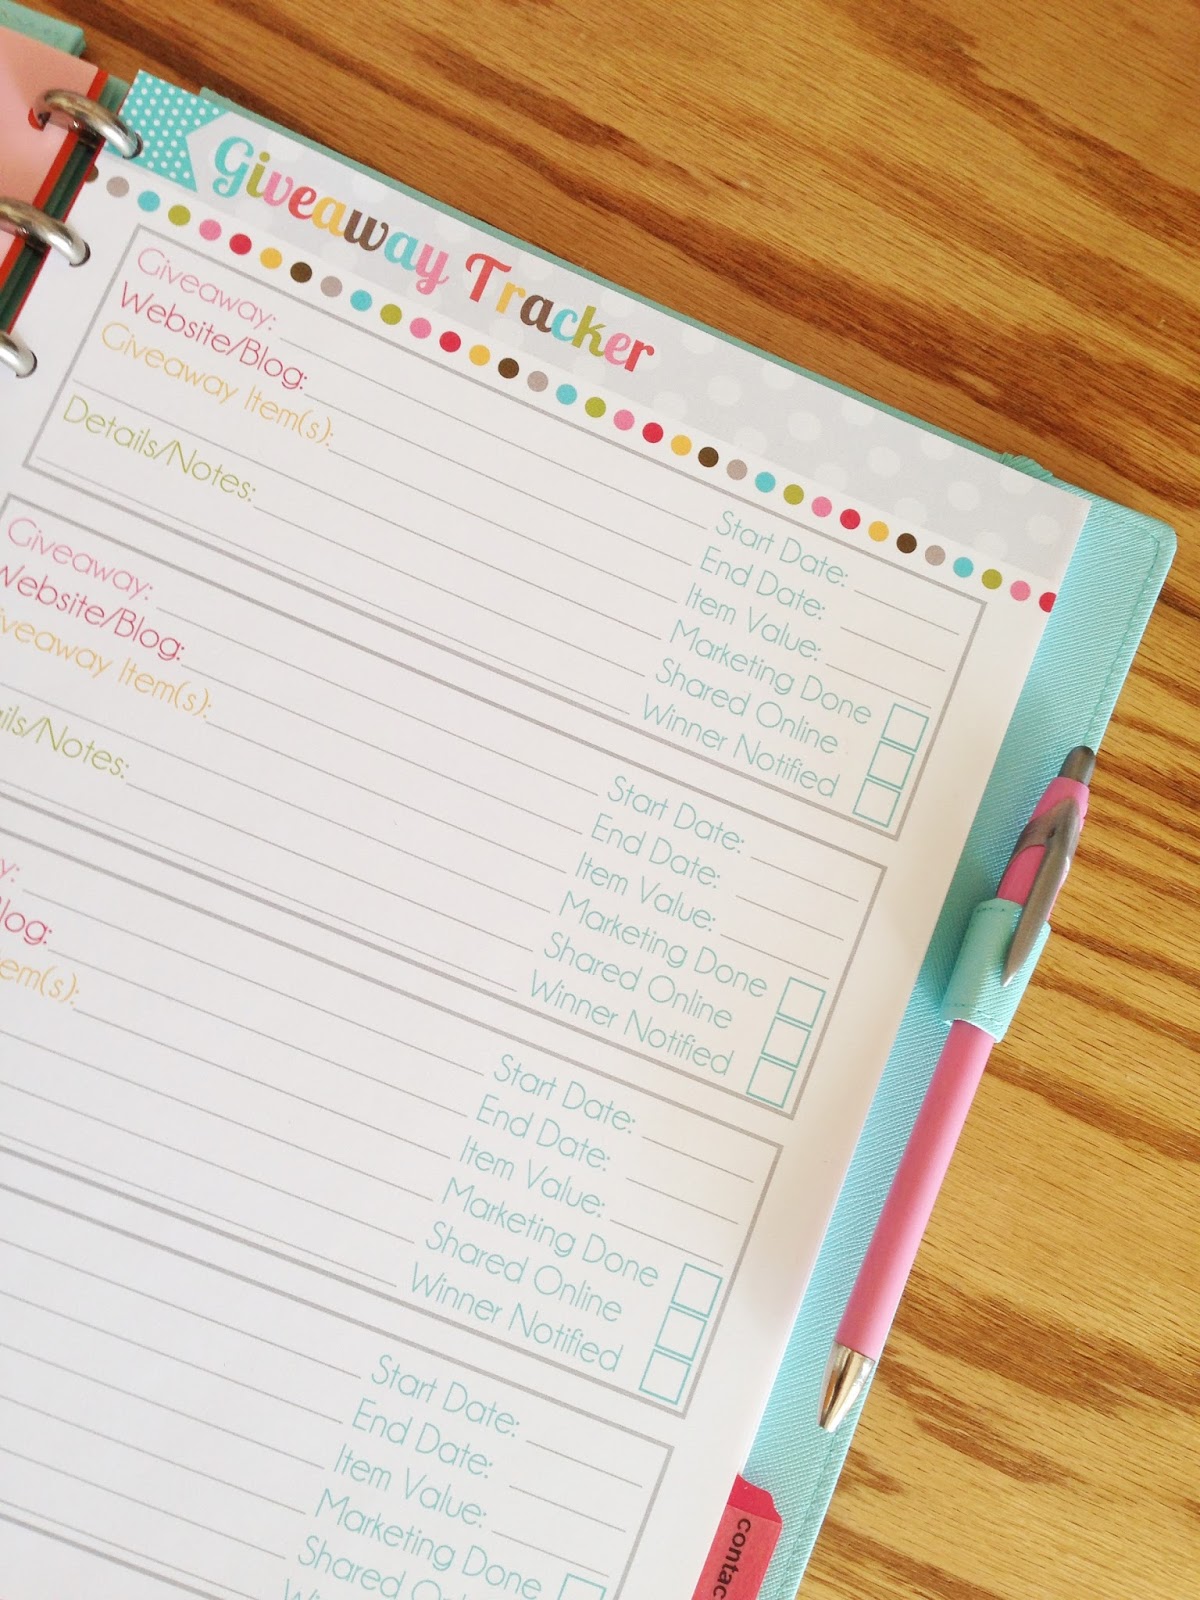 Giveaway Tracker
Giveaway:
Website/Blog:
Giveaway Item(s):
Details/Notes:
Start Date:
End Date:
Item Value:
Marketing Done
Shared Online
Winner Notified
Giveaway:
Website/Blog:
Giveaway Item(s):
Details/Notes:
Start Date:
End Date:
Item Value:
Marketing Done
Shared Online
Winner Notified
Start Date:
End Date:
Item Value:
Marketing Done
Shared Online
Winner Notified
Start Date:
End Date:
Item Value:
Marketing Done
Shared
contac